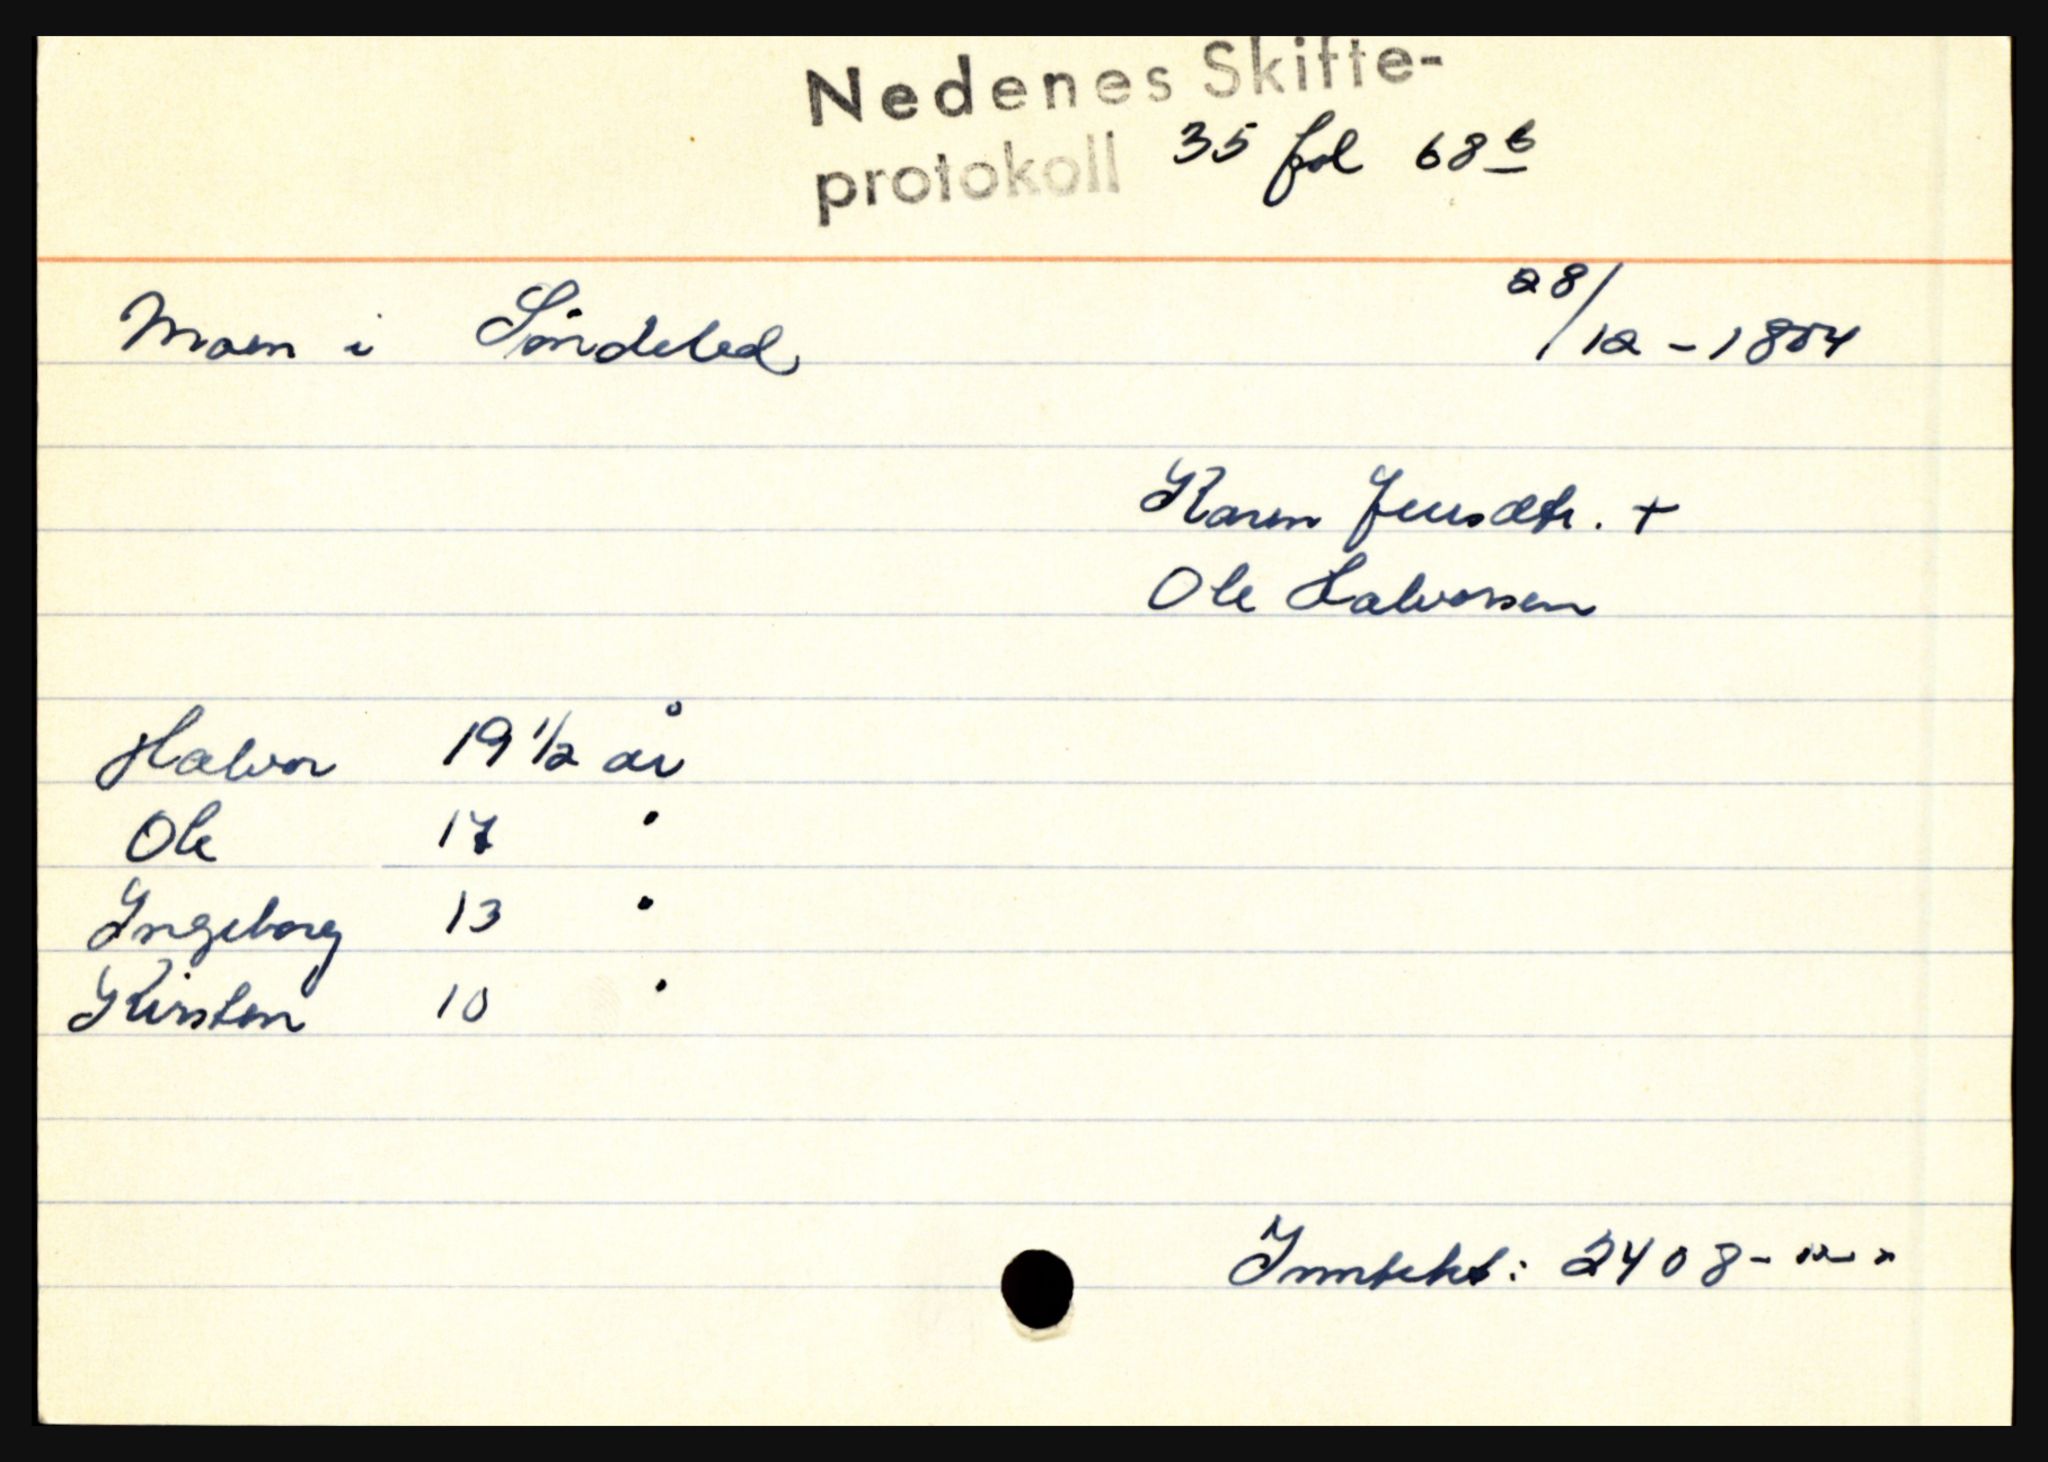 Nedenes Skifte-
protokoll 35 fol 68 b
Moen i Søndeled 28/12 - 1804
Karen Jensdtr. +
Ole Halvorsen
Halvor 19 1/2 år
Ole 17 "
Ingeborg 13 "
Kirsten 10 "
Inntekt: 2408 - " - "